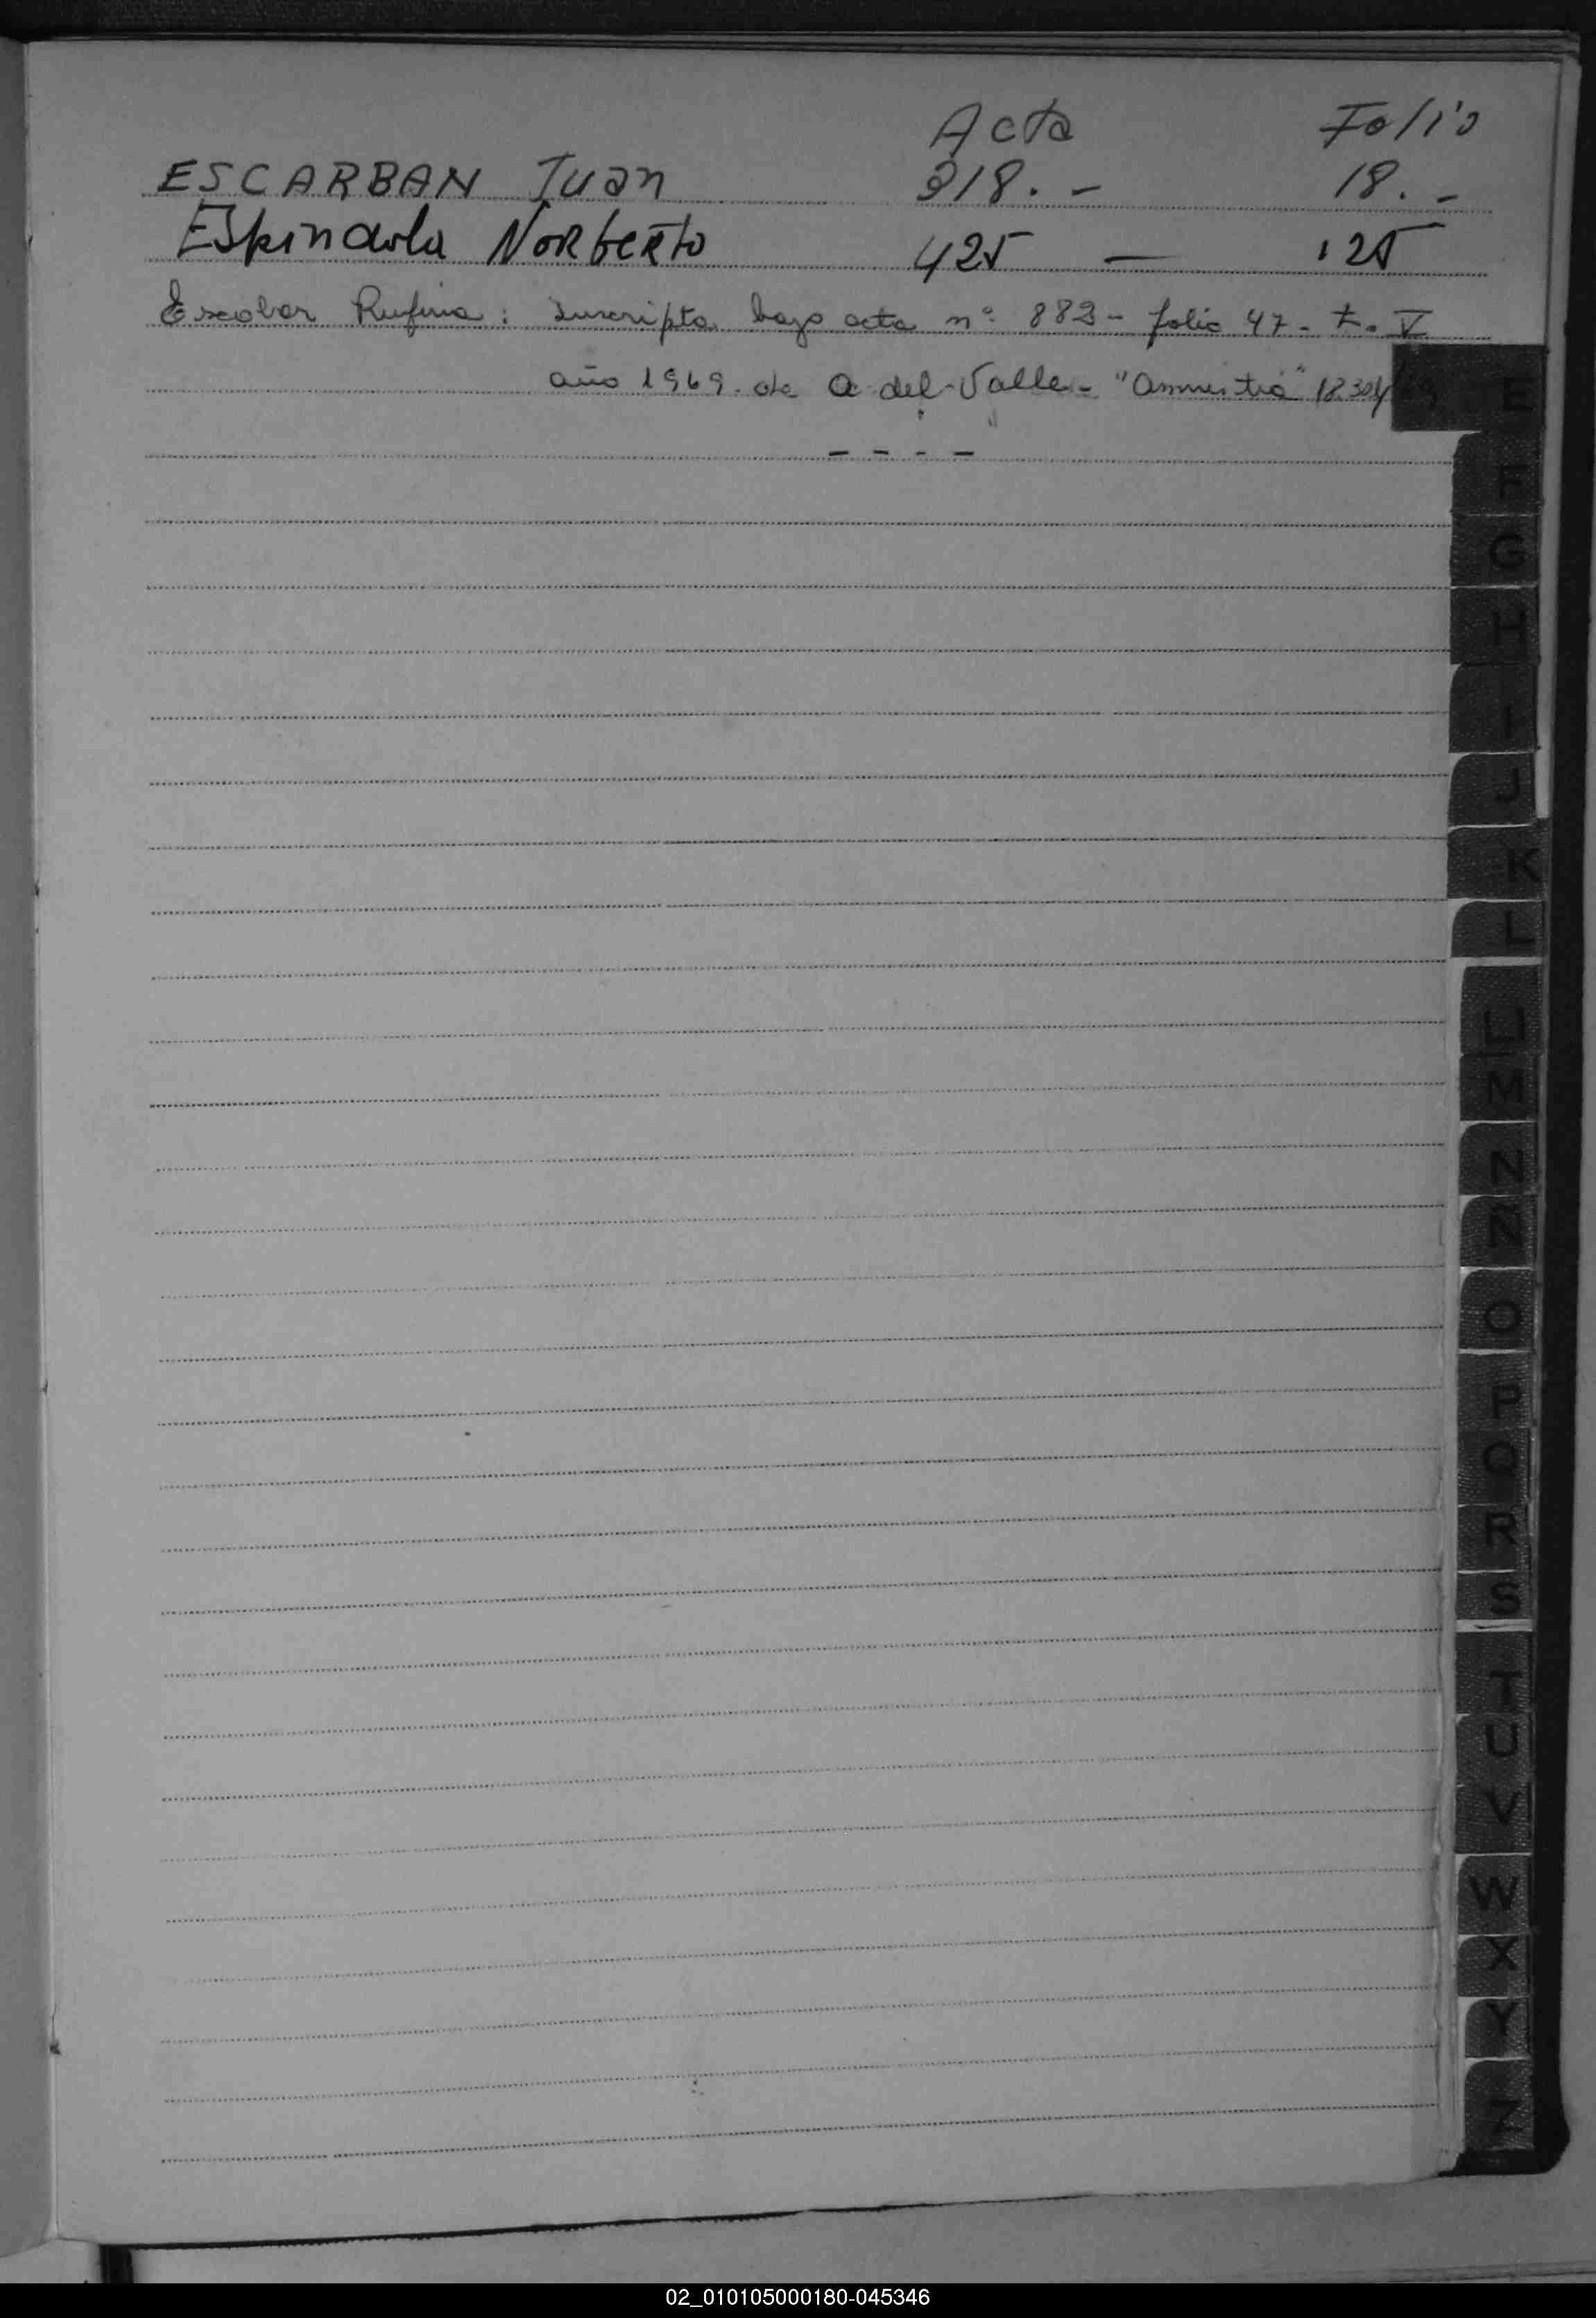 Acta Folio
ESCARBAN Juan 318. - 18. -
Espindola Norberto 425 — 125
Escobar Rufina: inscripta bajo acta nº 883 - folio 47 - t. V
año 1969. de A. del Valle - "Amnistia"
- - - -
E
F
G
H
I
J
K
L
LL
M
N
Ñ
O
P
Q
R
S
T
U
V
W
X
Y
Z
02_010105000180-045346